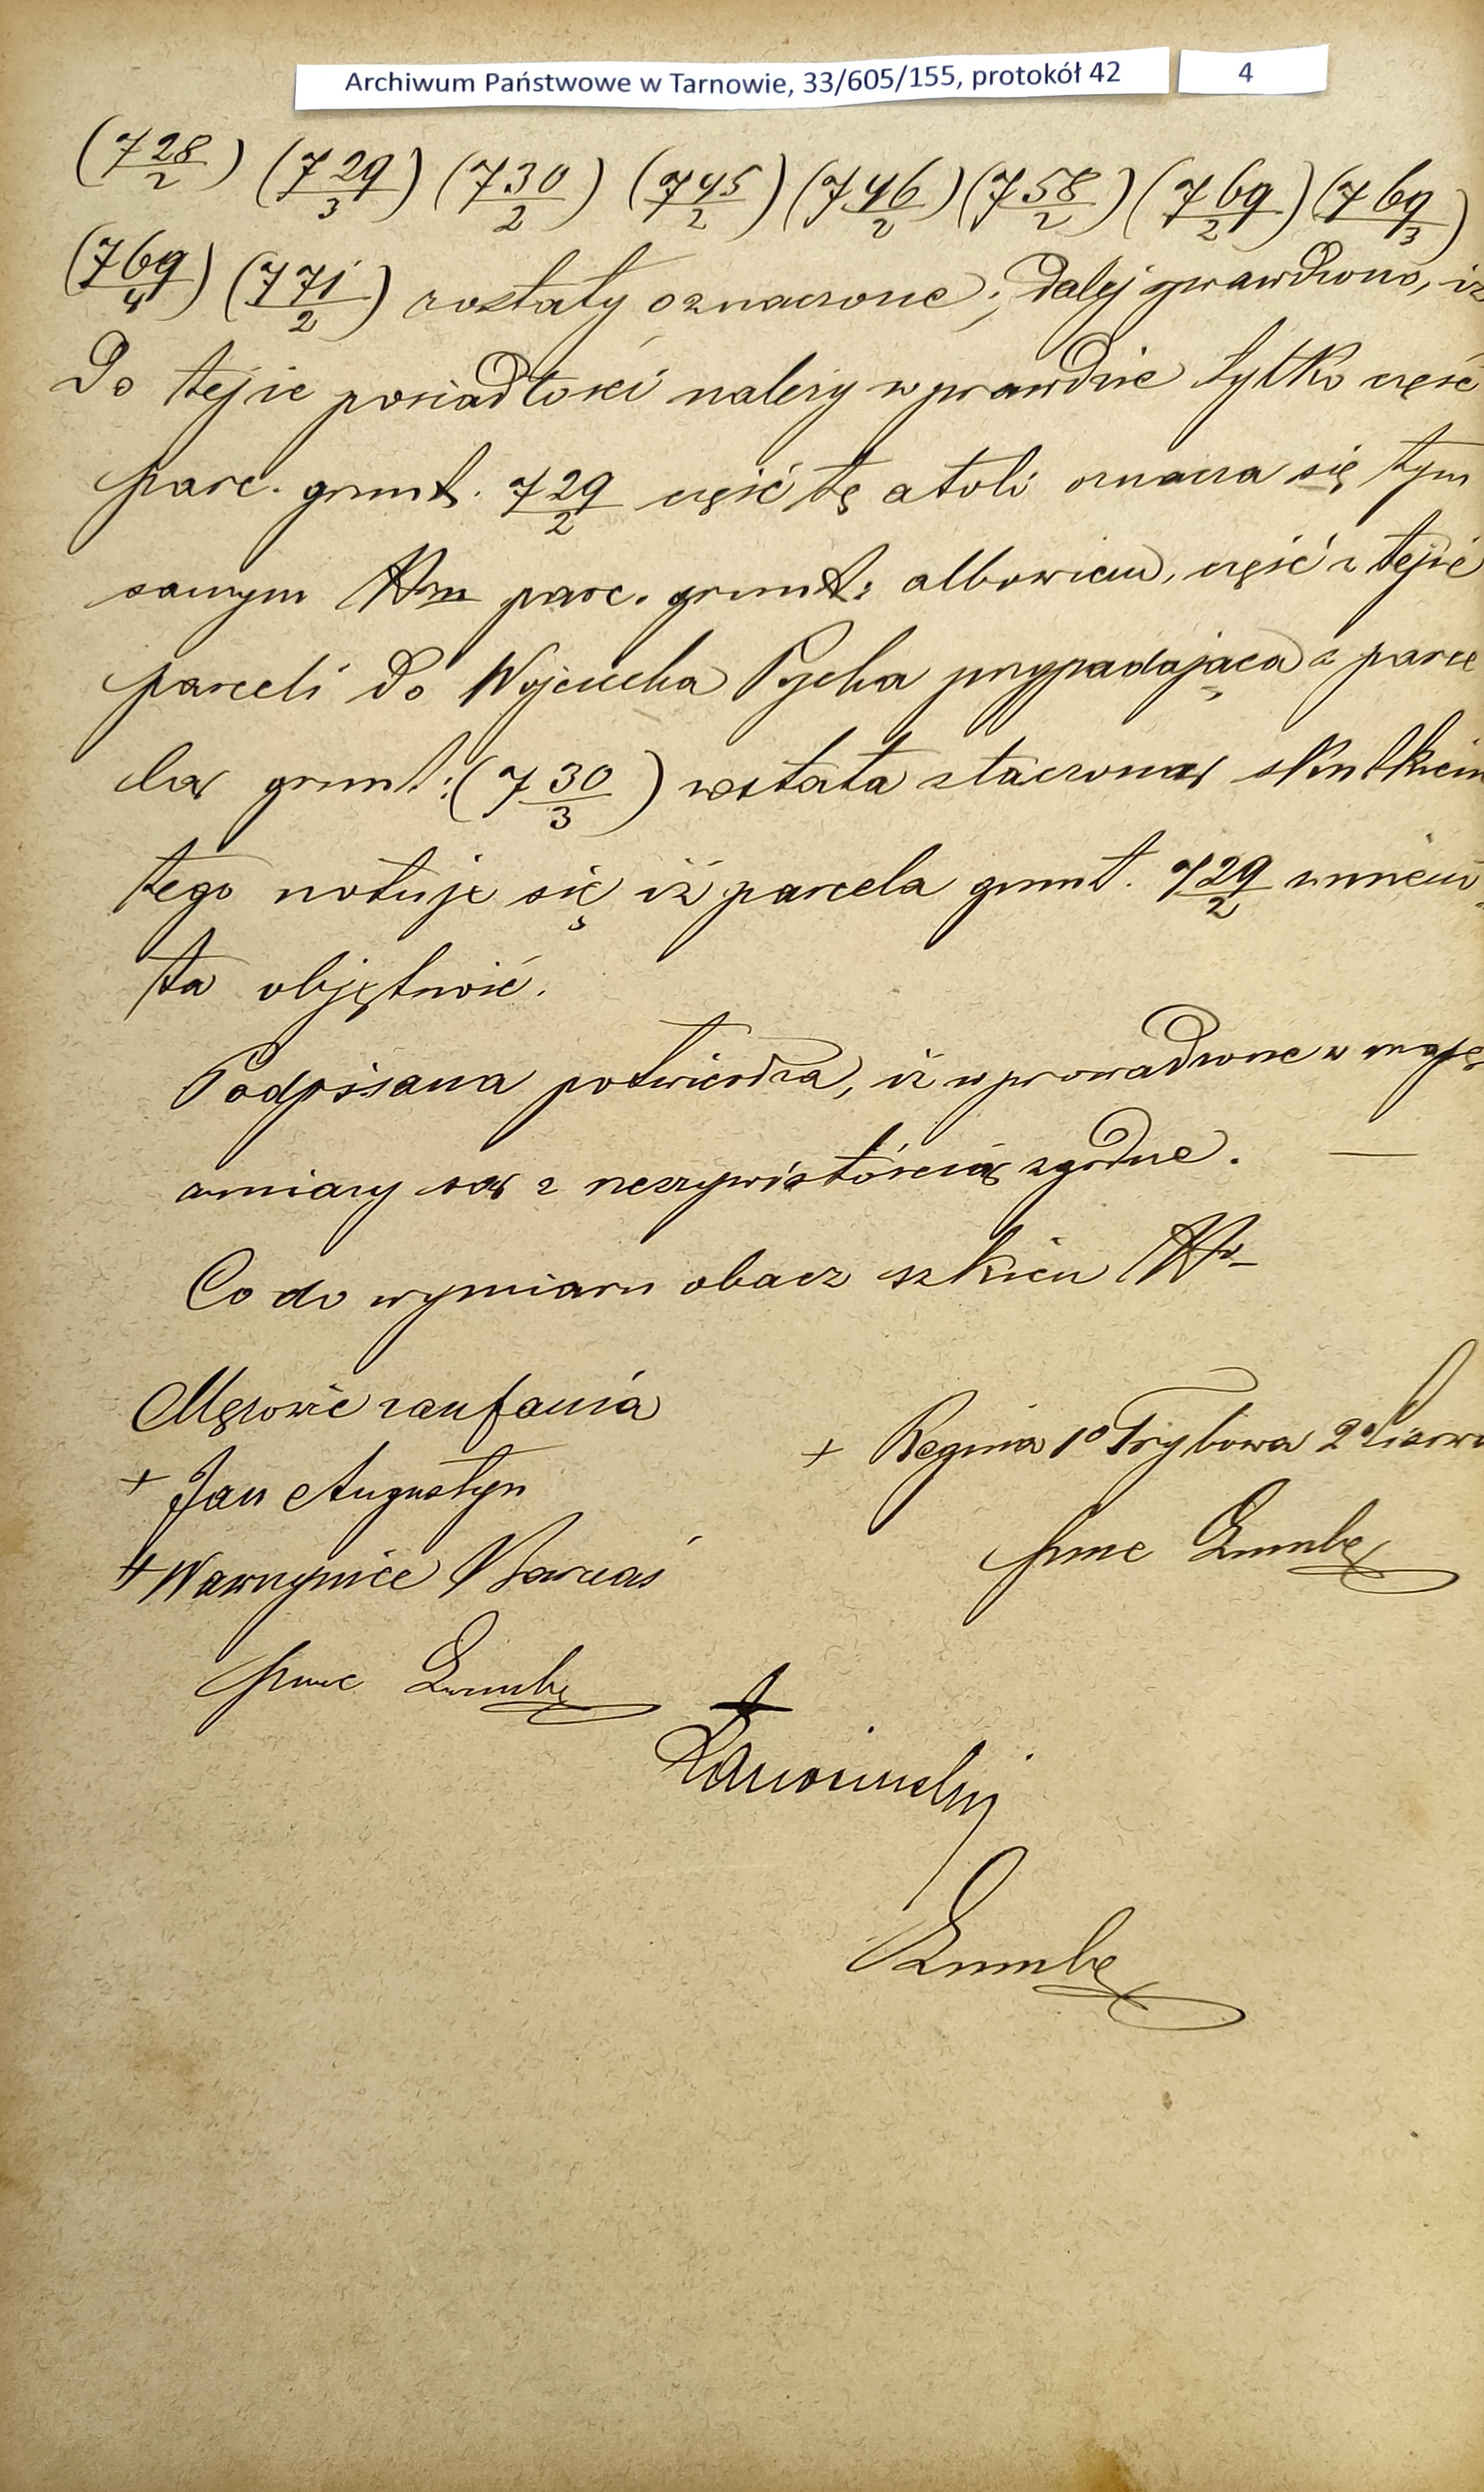 Archiwum Państwowe w Tarnowie, 33/605/155, protokół 42 4
(728/2) (729/3) (730/2) (745/2) (746/2) (758/2) (769/2) (769/3)
(769/4) (771/2) zostały oznaczone; dalej sprawdzono, iż
do tejże posiadłości należy wprawdzie tylko część
parc. grunt. 729/2 część tę atoli oznacza się tym
samym Nrm parc. grunt: albowiem, część z tejże
parceli do Wojciecha Pycha przypadająca z parce
lą grunt: (730/3) została złączoną skutkiem
tego notuje się iż parcela grunt. 729/2 zmieni
ła objętność.
Podpisana potwierdza, iż wprowadzone w mapę
zmiany są z rzeczywistością zgodne. —
Co do wymiaru obacz szkicu Nr
Mężowie zaufania
+ Regina 1o Trybowa 2o
+ Jan Augustyn
+ Wawrzyniec Barnaś